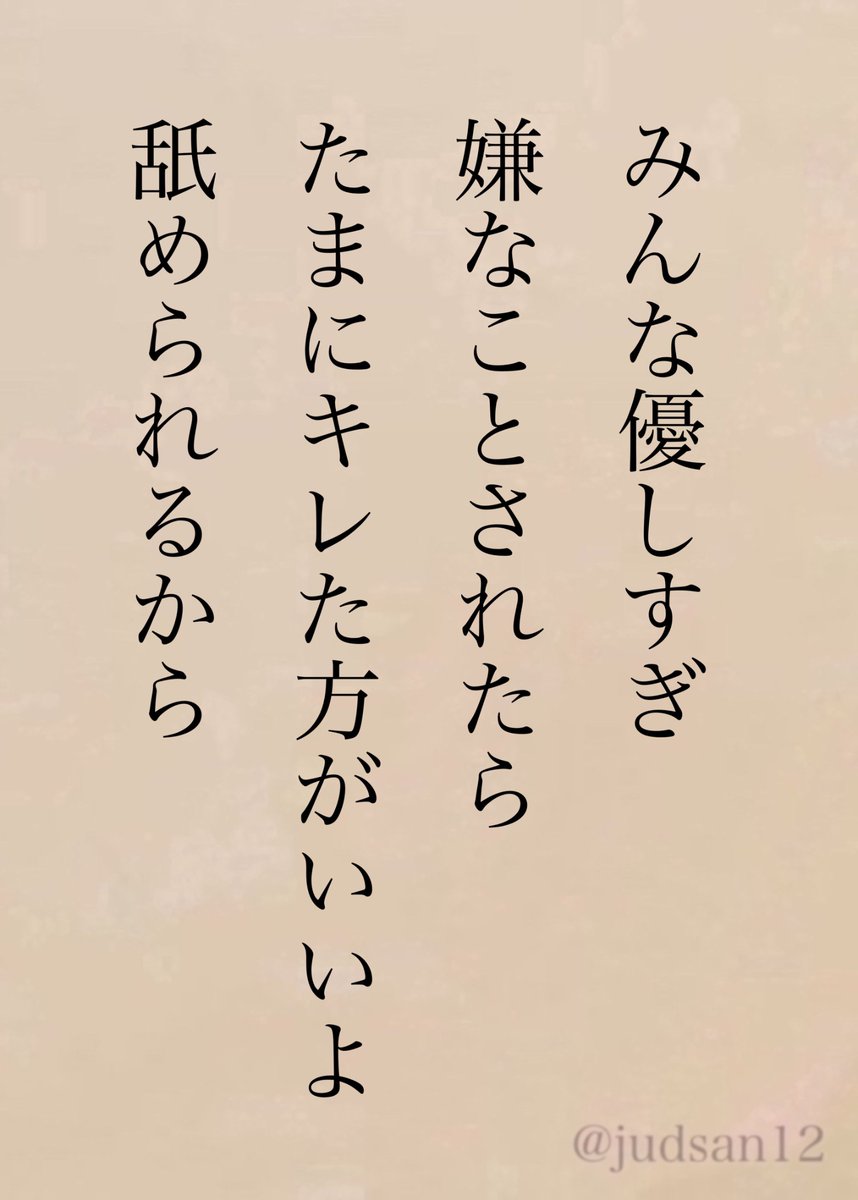 みんな優しすぎ
嫌なことされたら
たまにキレた方がいいよ
舐められるから
@judsan12